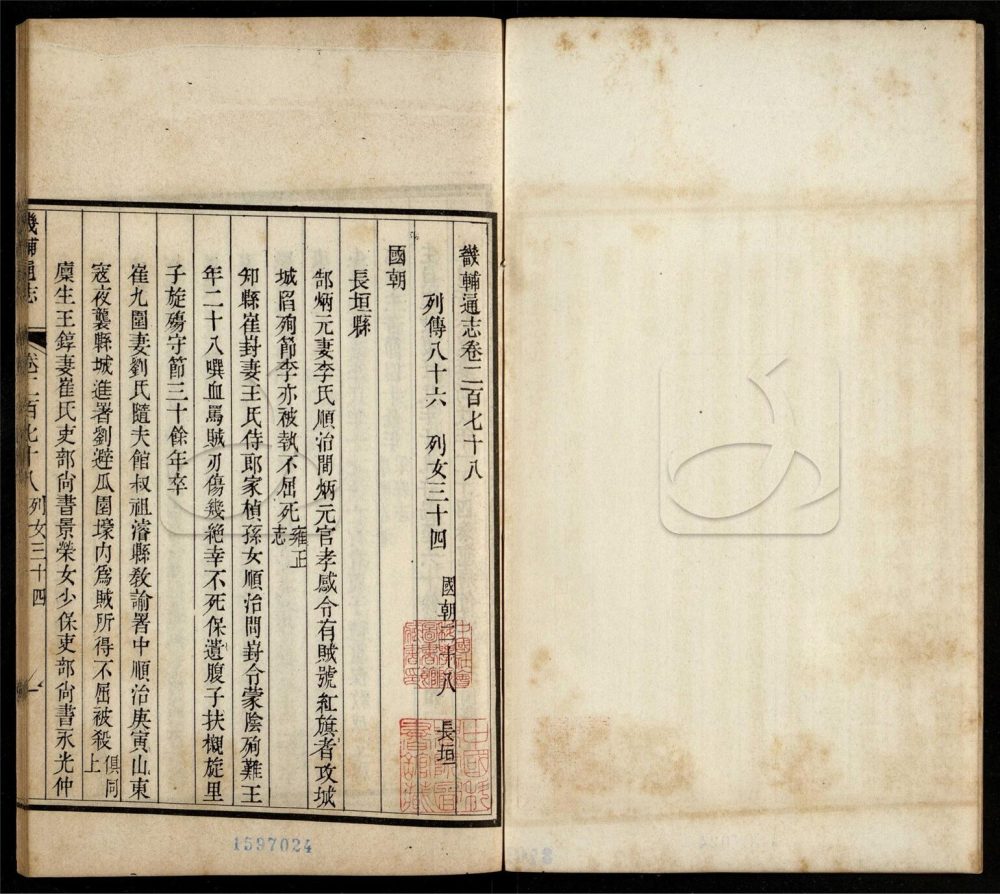 畿輔通志卷二百七十八
列傳八十六 列女三十四 國朝二十八 長垣
國朝
長垣縣
郜炳元妻李氏順治間炳元官孝感令有賊號紅旗者攻城
城陷殉節李亦被執不屈死雍正志
知縣崔崶妻王氏侍郎家楨孫女順治間崶令蒙陰殉難王
年二十八噀血罵賊刃傷幾絕幸不死保遺腹子扶櫬旋里
子旋殤守節三十餘年卒
崔九圍妻劉氏隨夫館叔祖濬縣敎諭署中順治庚寅山東
寇夜襲縣城進署劉避瓜園壕内爲賊所得不屈被殺俱同上
廩生王錞妻崔氏吏部尙書景榮女少保吏部尙書永光仲
畿輔通志
卷二百七十八 列女三十四
一
1597024